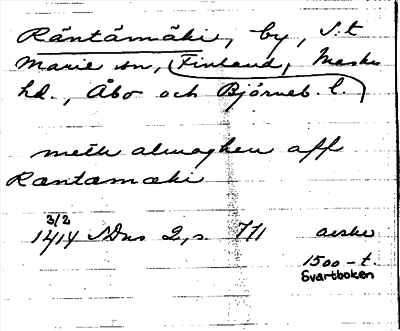 Räntämäki, by, S:t
Marie sn, (Finland), Masku
hd., Åbo och Björneb. l.
meth almoghen aff
Rantamæki
3/2
1414 SDns 2, s. 711 avskr
1500-t.
Svartboken